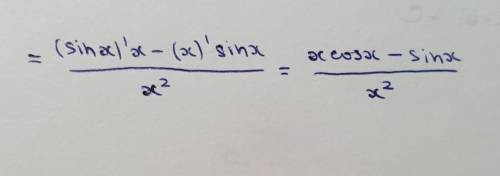 = ((sinx)'x - (x)'sinx)/x² = (xcosx - sinx)/x²